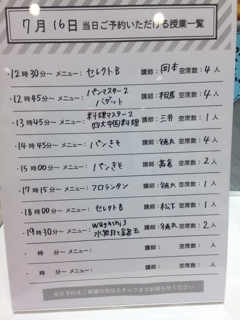 7月16日 当日ご予約いただける授業一覧
・12時30分～ メニュー: セレクトB 講師: 岡本 空席数: 4人
・12時45分～ メニュー: パンマスター2 バゲット 講師: 相馬 空席数: 4人
・13時45分～ メニュー: 料理マスター2 四大中国料理 講師: 三井 空席数: 1人
・14時45分～ メニュー: パンきそ 講師: 空席数: 4人
・15時00分～ メニュー: パンきそ 講師: 高倉 空席数: 2人
・17時15分～ メニュー: フロランタン 講師: 空席数: 1人
・18時00分～ メニュー: セレクトB 講師: 松下 空席数: 1人
・19時30分～ メニュー: wagashi3 水無月と 講師: 空席数: 2人
・ 時 分～ メニュー: 講師: 空席数: 人
・ 時 分～ メニュー: 講師: 空席数: 人
当日予約をご希望の方はスタッフまでお知らせください